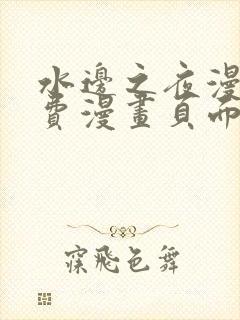 水邊之夜漫
費漫畫頁面
寐飛色舞